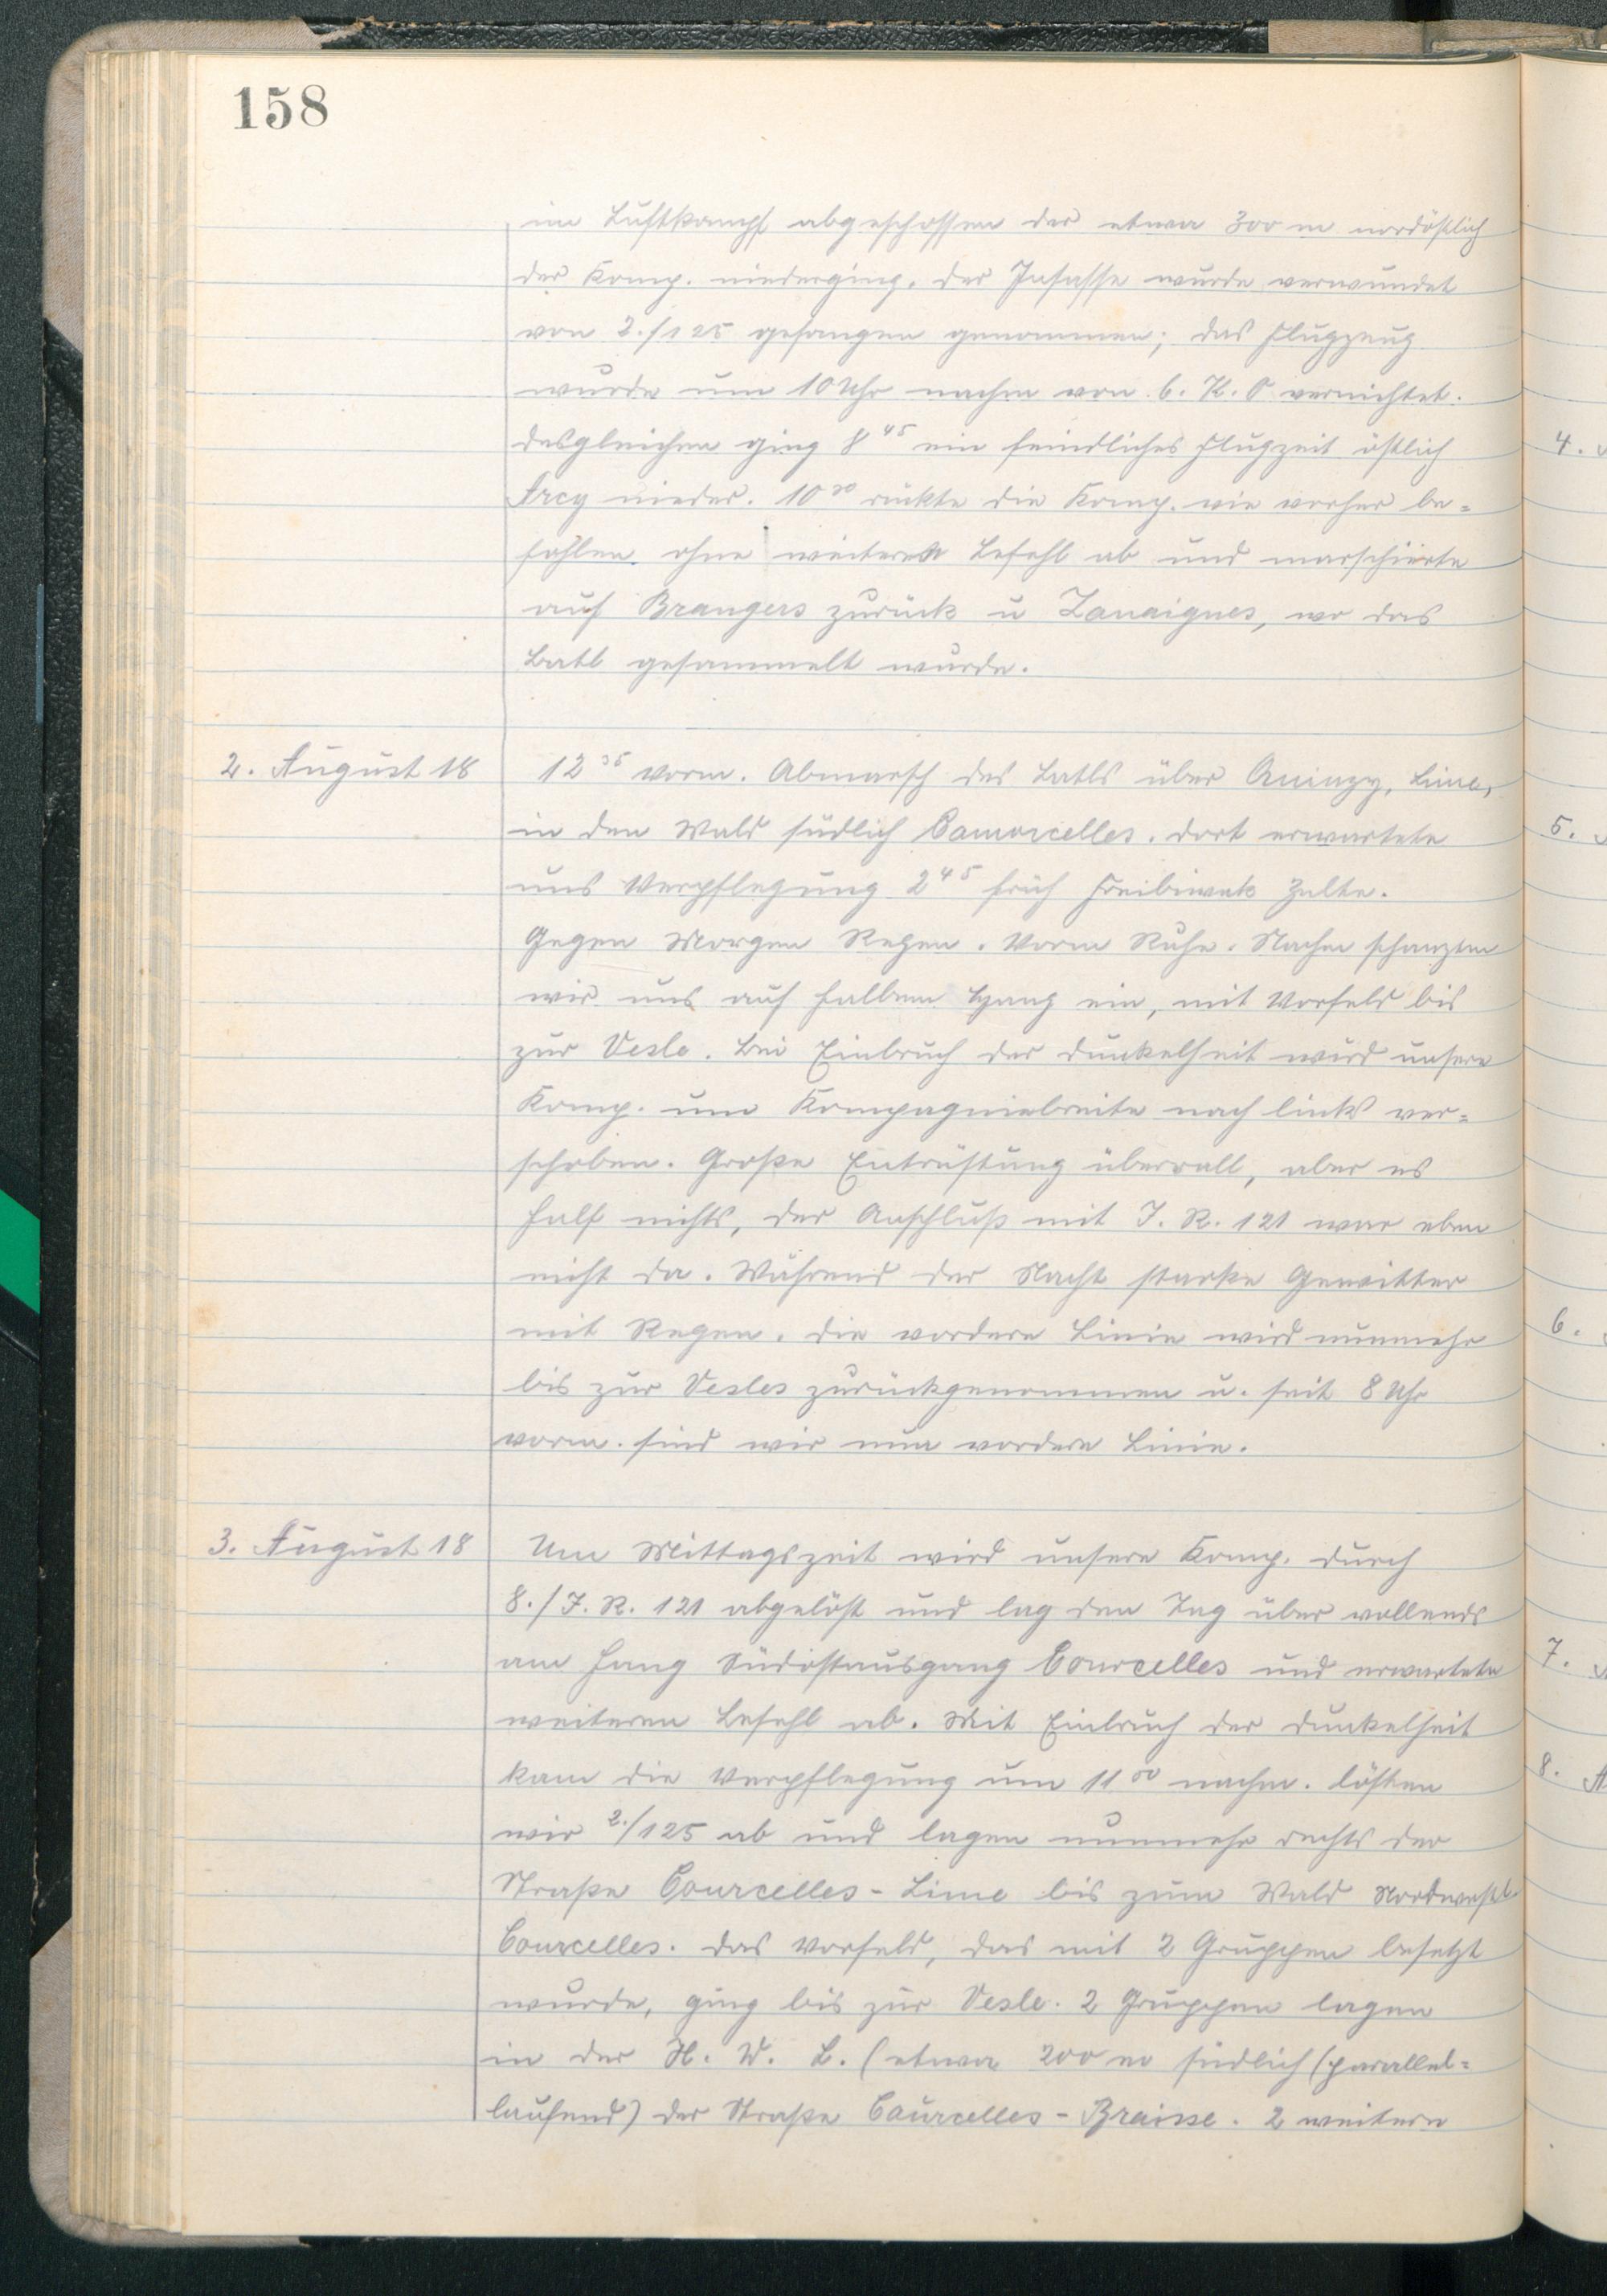 158
im Luftkampf abgeschossen der etwa 300 m nordöstlich
der Komp. niederging. Der Insasse wurde verwundet
von 2./125 gefangen genommen; das Flugzeug
wurde um 10 Uhr nachm von 6. K. O vernichtet.
Desgleichen ging 8 45 ein feindliches Flugzeit östlich
Arcy nieder. 10 30 rückte die Komp. wie vorher be=
fohlen ohne weiteren Befehl ab und marschierte
auf Brangers zurück u Lanaignes, wo das
Batl gesammelt wurde.
2. August 18
12 35 vorm. Abmarsch des Batls über Quinzy, Lime,
in den Wald südlich Camorcelles. Dort erwartete
uns Verpflegung 2 45 früh Freibiwak Zelte.
Gegen Morgen Regen. Vorm Ruhe. Nachm schanzten
wir uns auf halbem Hang ein, mit Vorfeld bis
zur Vesle. Bei Einbruch der Dunkelheit wird unsere
Komp. um Kompagniebreite nach links ver=
schoben. Große Entrüstung überall, aber es
half nichts, der Anschluß mit I. R. 121 war eben
nicht da. Während der Nacht starke Gewitter
mit Regen. Die vordere Linie wird nunmehr
bis zur Vesles zurückgenommen u. seit 8 Uhr
vorm. sind wir nun vordere Linie.
3. August 18
Um Mittagszeit wird unsere Komp. durch
8./I. R. 121 abgelöst und lag den Tag über vollends
am Hang Südostausgang Courcelles und erwartete
weiteren Befehl ab. Mit Einbruch der Dunkelheit
kam die Verpflegung um 11 00 nachm. lösten
wir 2./125 ab und lagen nunmehr rechts der
Straße Courcelles - Lime bis zum Wald Nordwestl.
Courcelles. Das Vorfeld, das mit 2 Gruppen besetzt
wurde, ging bis zur Vesle. 2 Gruppen lagen
in der H. W. L. (etwa 200 m südlich (parallel=
laufend) der Straße Courcelles - Braisne. 2 weitere
4.
5.
6.
7.
8. A